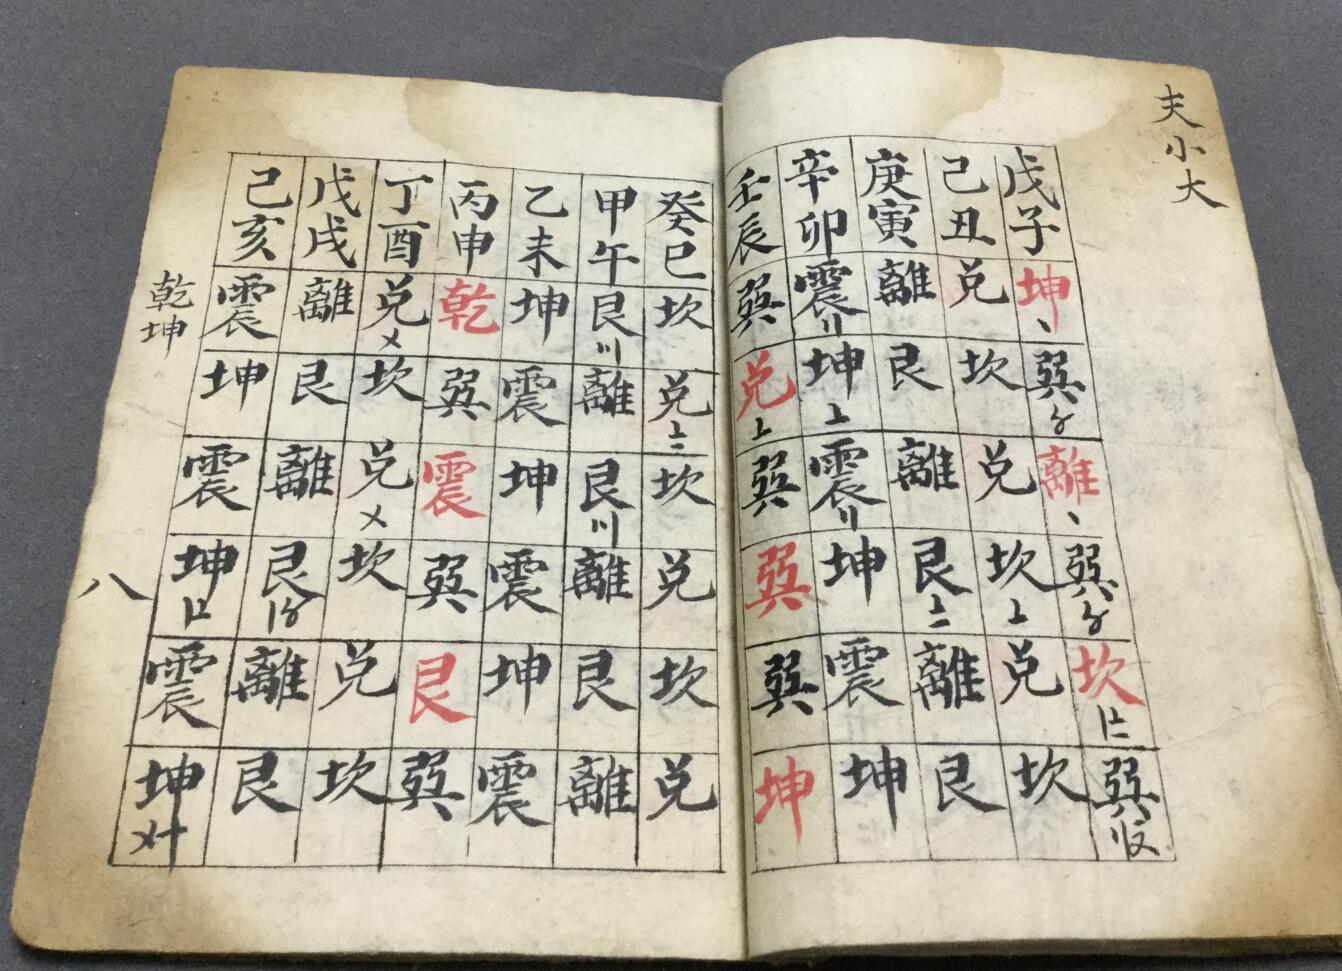 夫小大
戊子 坤 巽 離 巽 坎 巽
己丑 兑 坎 兑 坎 兑 坎
庚寅 離 艮 離 艮 離 艮
辛卯 震 坤 震 坤 震 坤
壬辰 巽 兑 巽 巽 巽 坤
癸巳 坎 兑 坎 兑 坎 兑
甲午 艮 離 艮 離 艮 離
乙未 坤 震 坤 震 坤 震
丙申 乾 巽 震 巽 艮 巽
丁酉 兑 坎 兑 坎 兑 坎
戊戌 離 艮 離 艮 離 艮
己亥 震 坤 震 坤 震 坤
乾坤
八